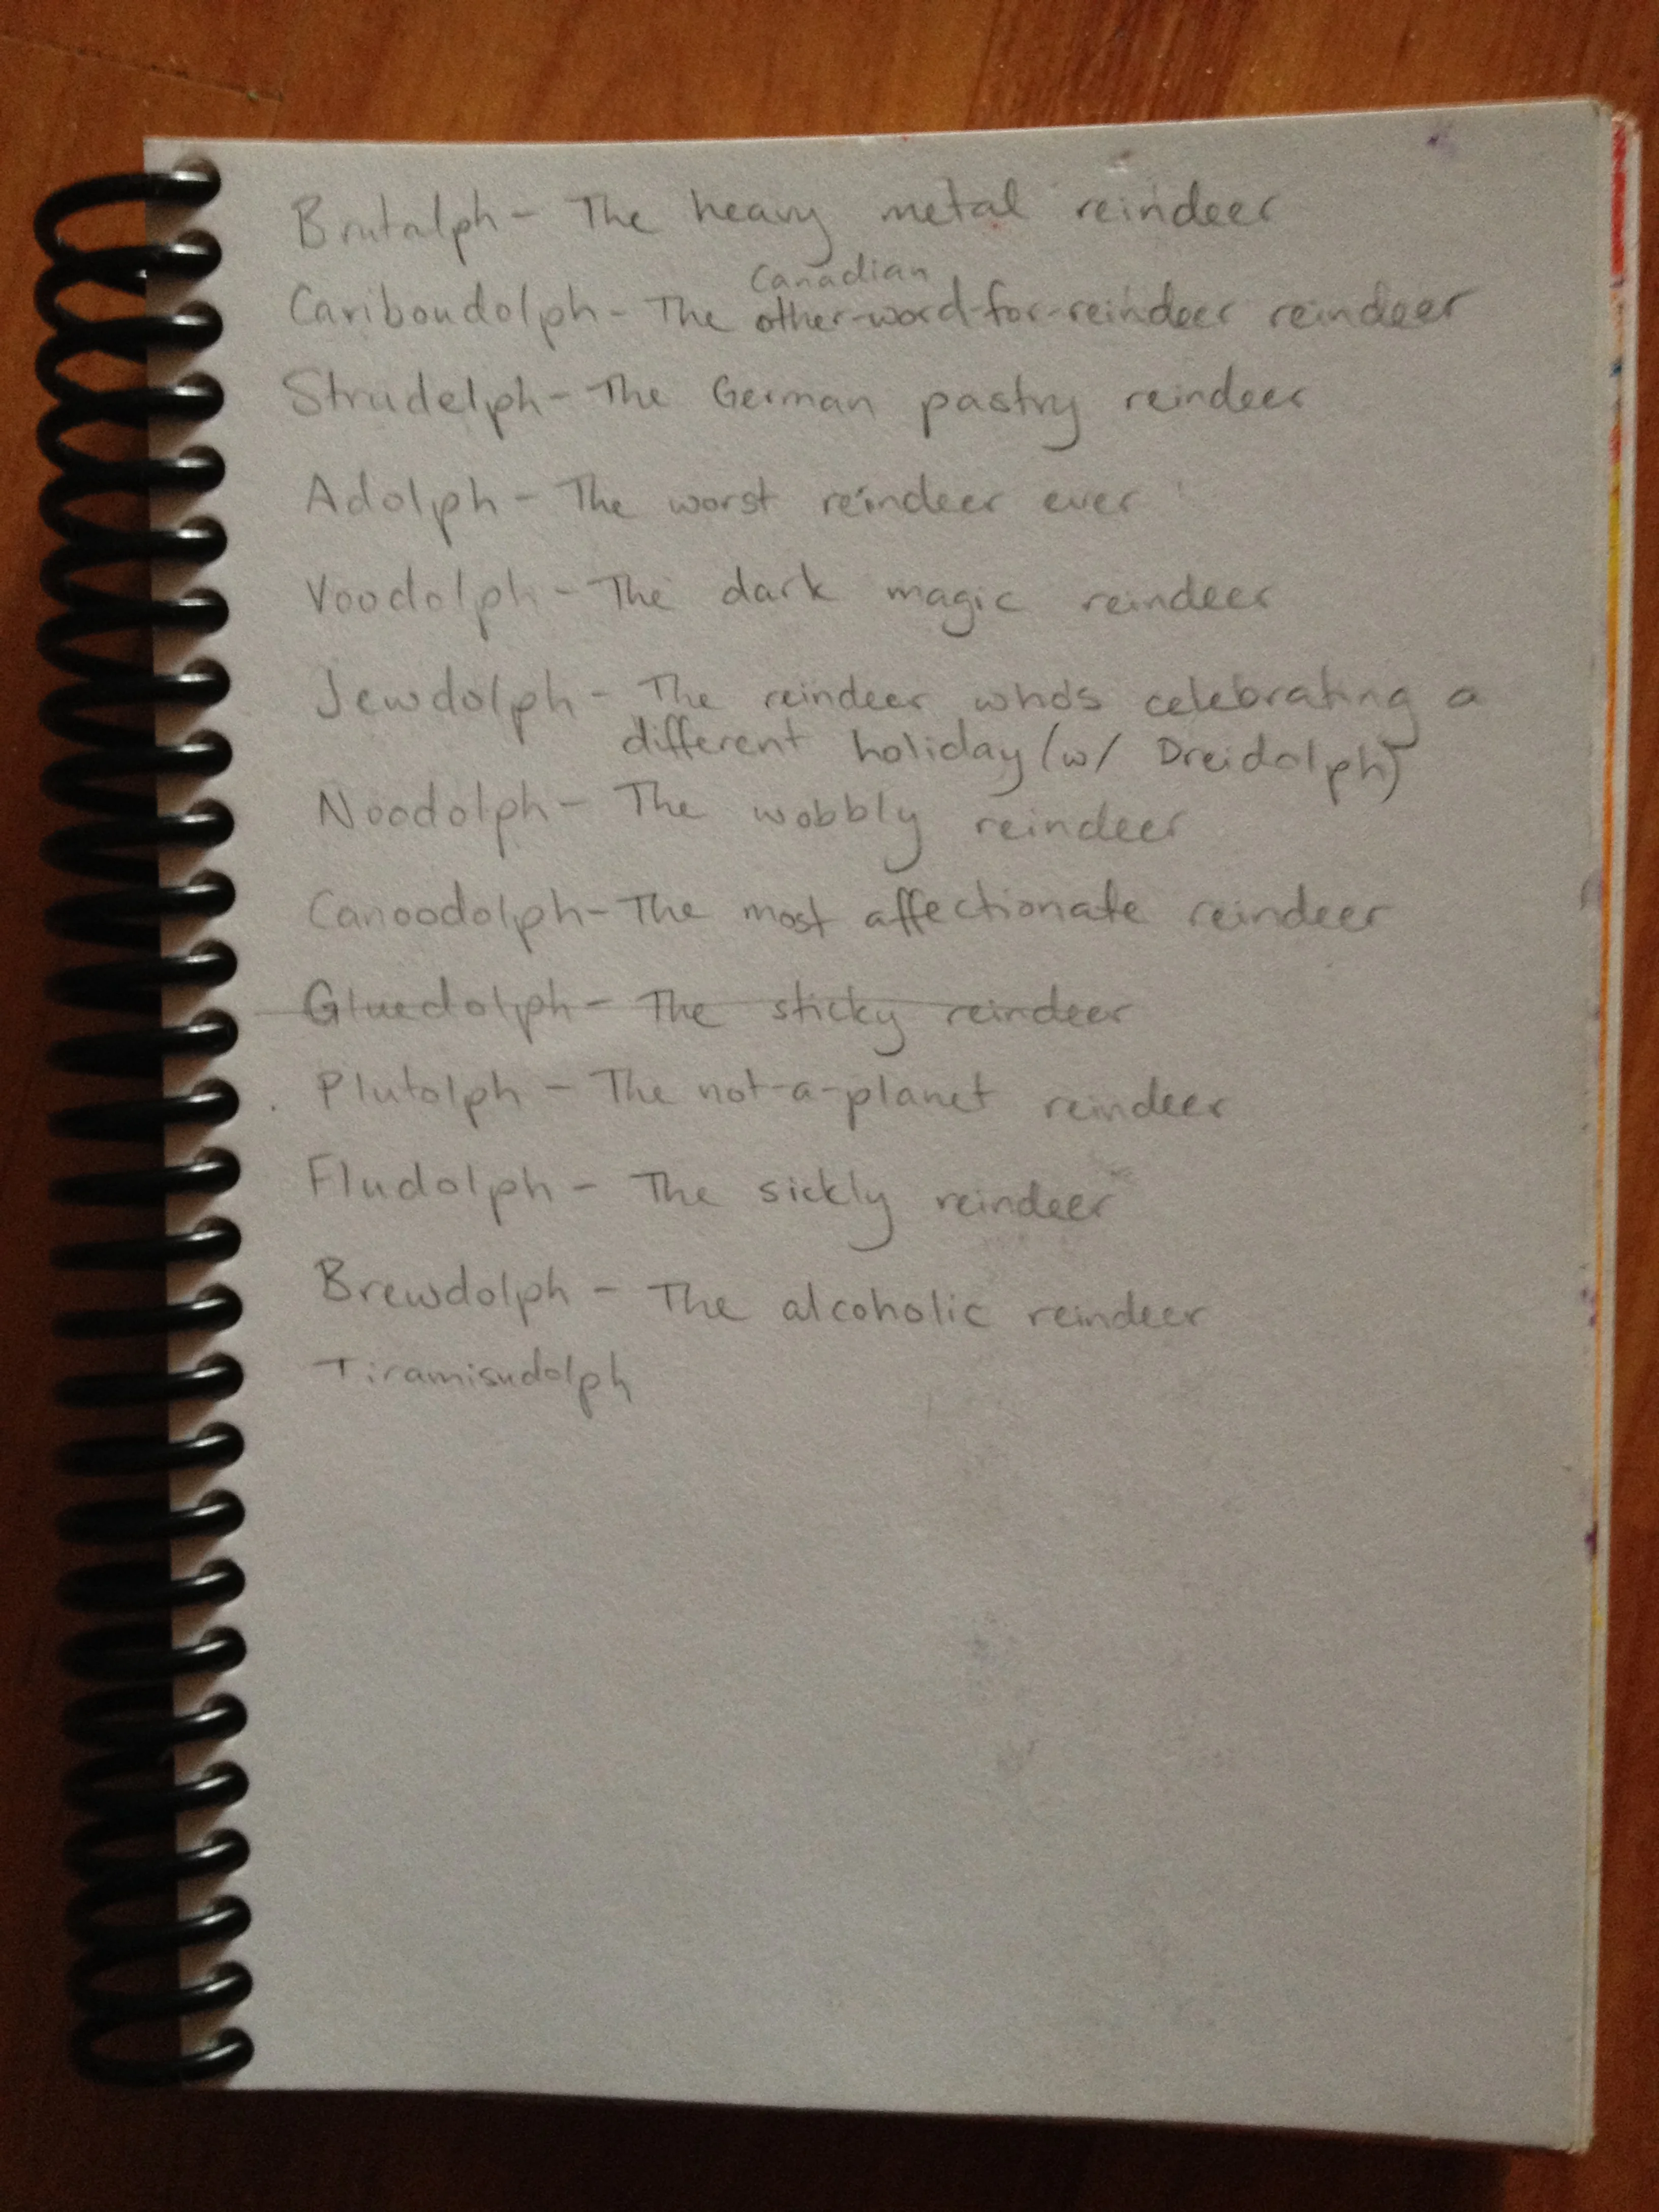 Brutalph - The heavy metal reindeer
Canadian
Cariboudolph - The other-word-for-reindeer reindeer
Strudelph - The German pastry reindeer
Adolph - The worst reindeer ever
Voodolph - The dark magic reindeer
Jewdolph - The reindeer who's celebrating a
different holiday (w/ Dreidolph)
Noodolph - The wobbly reindeer
Canoodolph - The most affectionate reindeer
Gluedolph - The sticky reindeer
Plutolph - The not-a-planet reindeer
Fludolph - The sickly reindeer
Brewdolph - The alcoholic reindeer
Tiramisudolph